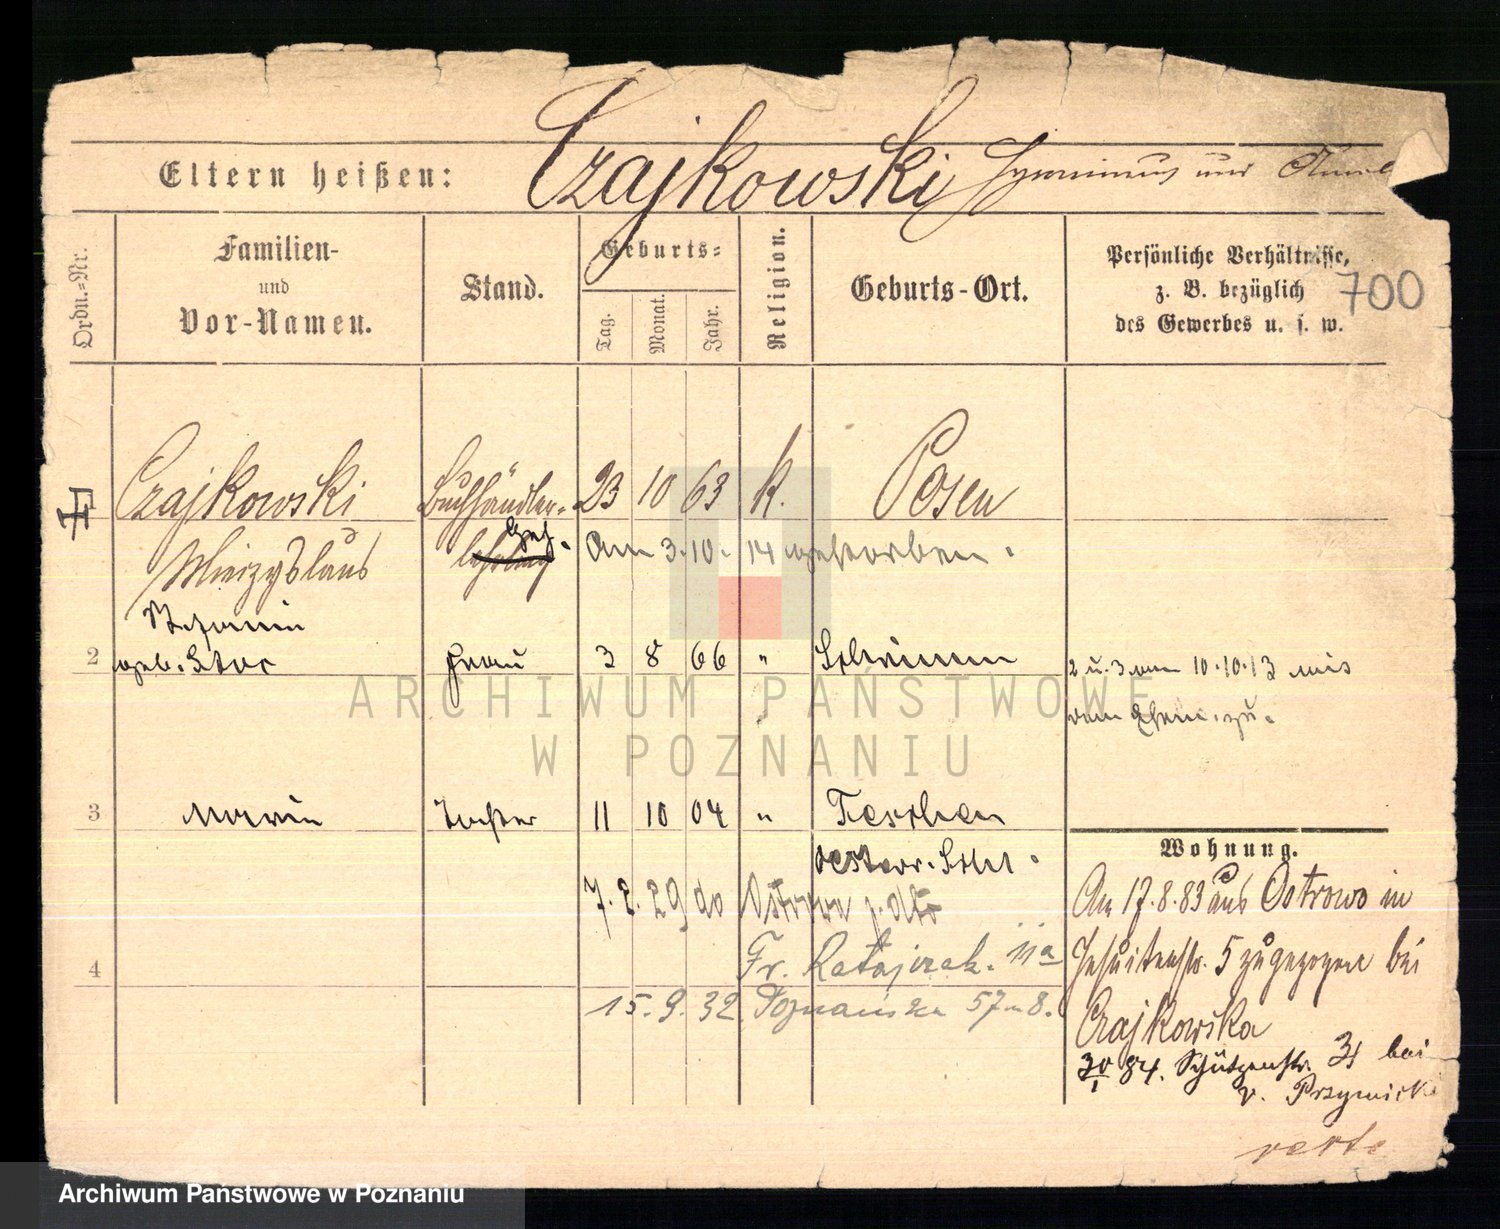 Eltern heißen: Czajkowski Hyronimus und
Ordn.-Nr.
Familien-
und
Vor-Namen.
Stand.
Geburts-
Tag. Monat. Jahr.
Religion.
Geburts-Ort.
Persönliche Verhältnisse,
z. B. bezüglich
des Gewerbes u. s. w.
700
1 Czajkowski Buchhändler- 23 10 63 k. Posen
Miezyslaus lehrling Geh. Am 3.10.14 gestorben.
2 geb. Frau 3 8 66 " Schrimm
2 u. 3 am 10.10.13 aus
3 Maria Tochter 11 10 04 " Teschen
oesterr. Schl.
Wohnung.
7.2.29 do Ostrowa
Am 17.8.83 aus Ostrowo in
4
Fr. Ratajczak. 11a
Jesuitenstr. 5 zugezogen bei
15.9.32 Poznańska 57 m 8.
Czajkowska
30/1 84. Schützenstr. 31 bei
v. Przymicki
verte
ARCHIWUM PAŃSTWOWE
W POZNANIU
Archiwum Państwowe w Poznaniu